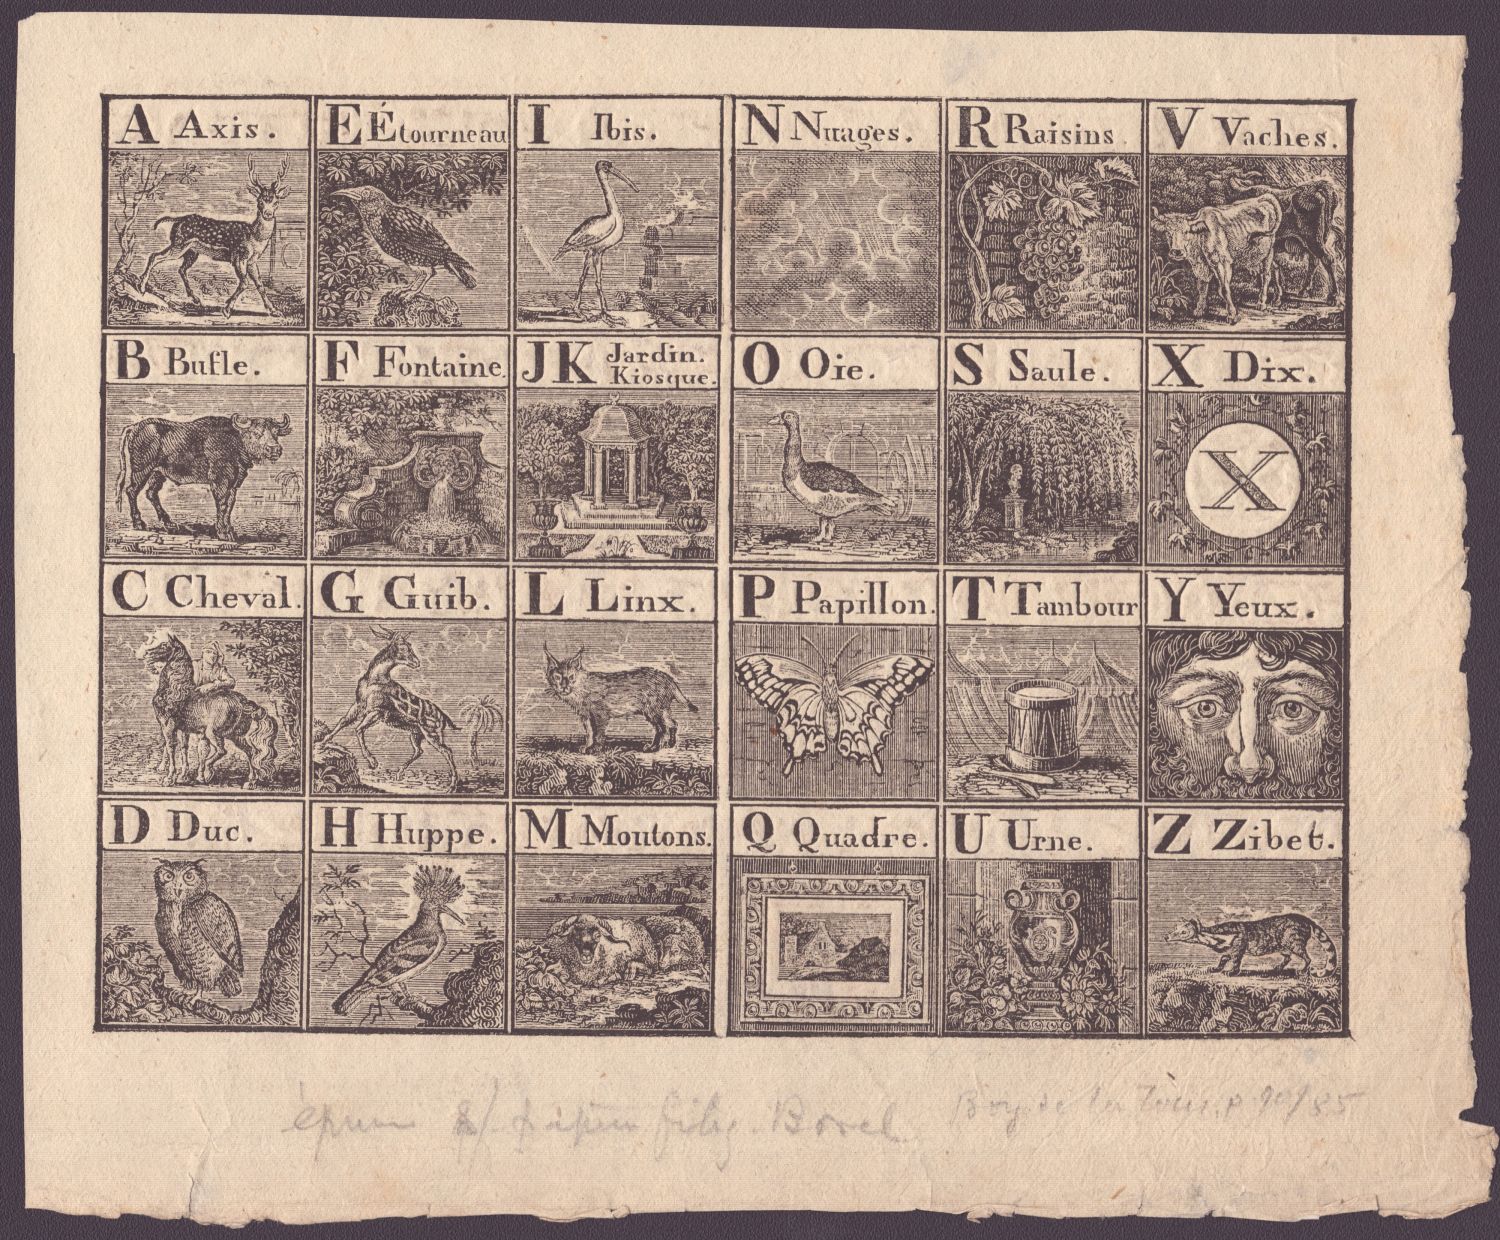 A Axis.
E Étourneau
I Ibis.
N Nuages.
R Raisins.
V Vaches.
B Bufle.
F Fontaine.
JK Jardin.
Kiosque.
O Oie.
S Saule.
X Dix.
X
C Cheval.
G Guib.
L Linx.
P Papillon.
T Tambour
Y Yeux.
D Duc.
H Huppe.
M Moutons.
Q Quadre.
U Urne.
Z Zibet.
Boy de la Tour, p. 90/85